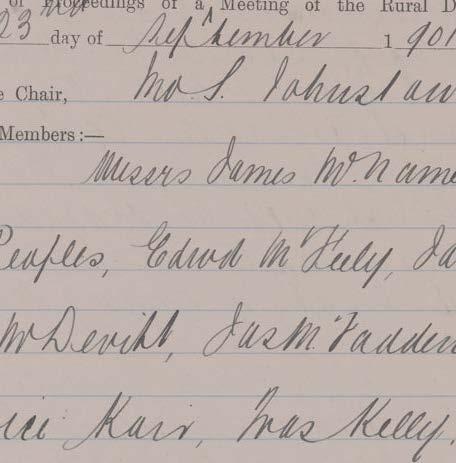 of Proceedings of a Meeting of the Rural D
23rd day of September 1901
e Chair, Mr. S. Johnston
Members:—
Messrs James McName
Peoples, Edwd McFeely, Ja
McDevitt, Jas McFadden
Kelly,